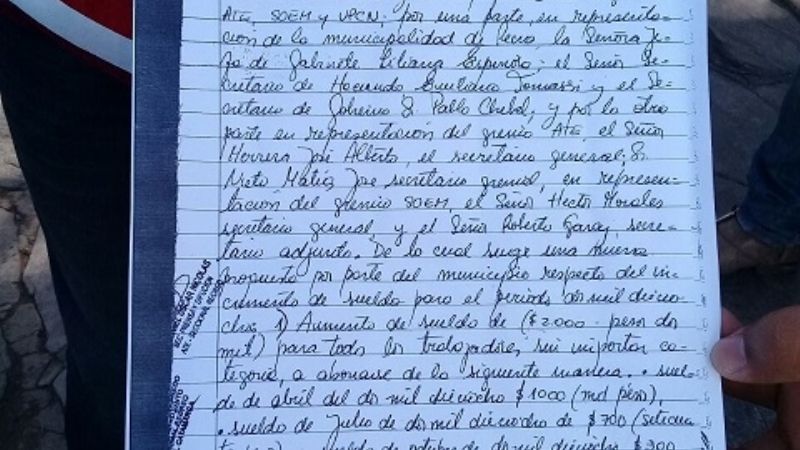 ATE, SOEM y UPCN; por una parte, en representa-
ción de la municipalidad de la Señora Je-
fa de Gabinete Liliana Espinoza; el Señor Se-
cretario de Hacienda Emiliano Tomassi y el Se-
cretario de Gobierno Sr. Pablo y por la otra
parte en representación del gremio ATE, el Señor
Herrera José Alberto, el secretario general; Sr.
Nieto Matías Jose secretario gremial, en represen-
tación del gremio SOEM, el Señor Hector Morales
secretario general, y el Señor Roberto Garay, secre-
tario adjunto. De lo cual surge una nueva
propuesta por parte del municipio respecto del in-
cremento de sueldo para el periodo dos mil diecio-
cho 1) Aumento de sueldo de ($2000 - pesos dos
mil) para todos los trabajadores, sin importar ca-
tegoria, a abonarse de la siguiente manera. • suel-
do de abril del dos mil dieciocho $1000 (mil pesos),
• sueldo de Julio de dos mil dieciocho de $700 (setecien
sueldo de octubre de dos mil dieciocho $300
NICOLAS